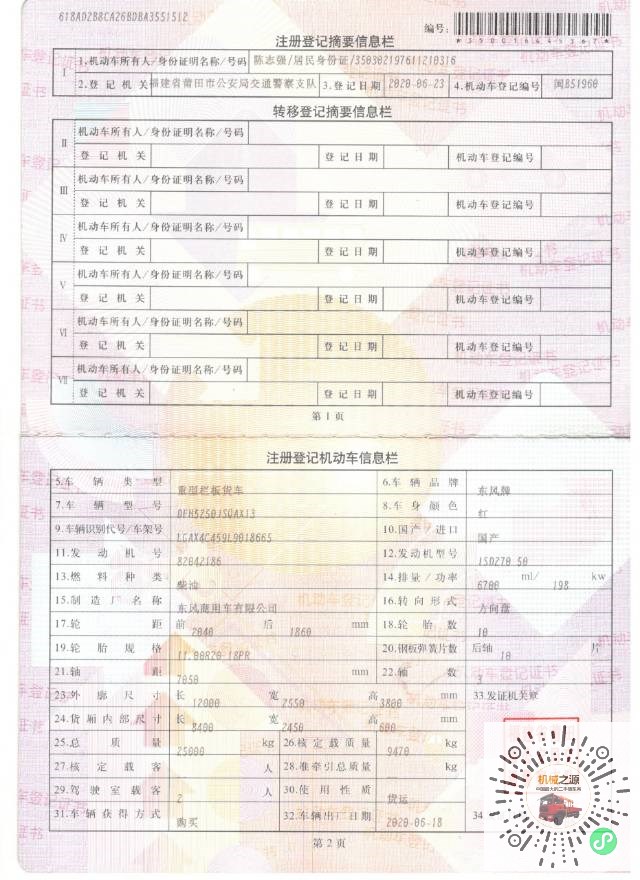 618AD2B8CA26BDBA3551512
编号:
*350016445367*
注册登记摘要信息栏
I 1.机动车所有人/身份证明名称/号码 陈志强/居民身份证/350302197611210316
2.登记机关 福建省莆田市公安局交通警察支队 3.登记日期 2020-06-23 4.机动车登记编号 闽B51960
转移登记摘要信息栏
II 机动车所有人/身份证明名称/号码
登记机关 登记日期 机动车登记编号
III 机动车所有人/身份证明名称/号码
登记机关 登记日期 机动车登记编号
IV 机动车所有人/身份证明名称/号码
登记机关 登记日期 机动车登记编号
V 机动车所有人/身份证明名称/号码
登记机关 登记日期 机动车登记编号
VI 机动车所有人/身份证明名称/号码
登记机关 登记日期 机动车登记编号
VII 机动车所有人/身份证明名称/号码
登记机关 登记日期 机动车登记编号
第1页
注册登记机动车信息栏
5.车辆类型 重型栏板货车 6.车辆品牌 东风牌
7.车辆型号 DFH5250JSQAX13 8.车身颜色 红
9.车辆识别代号/车架号 LGAX4C459L9018665 10.国产/进口 国产
11.发动机号 82042186 12.发动机型号 ISD270 50
13.燃料种类 柴油 14.排量/功率 6700 ml/ 198 kw
15.制造厂名称 东风商用车有限公司 16.转向形式 方向盘
17.轮距 前 2040 后 1860 mm 18.轮胎数 10
19.轮胎规格 11.00R20 18PR 20.钢板弹簧片数 后轴 10 片
21.轴距 7050 mm 22.轴数 3
23.外廓尺寸 长 12000 宽 2550 高 3800 mm 33.发证机关章
24.货厢内部尺寸 长 8400 宽 2450 高 600 mm
25.总质量 25000 kg 26.核定载质量 9470 kg
27.核定载客 人 28.准牵引总质量 kg
29.驾驶室载客 2 人 30.使用性质 货运
31.车辆获得方式 购买 32.车辆出厂日期 2020-06-18 34
第2页
机械之源